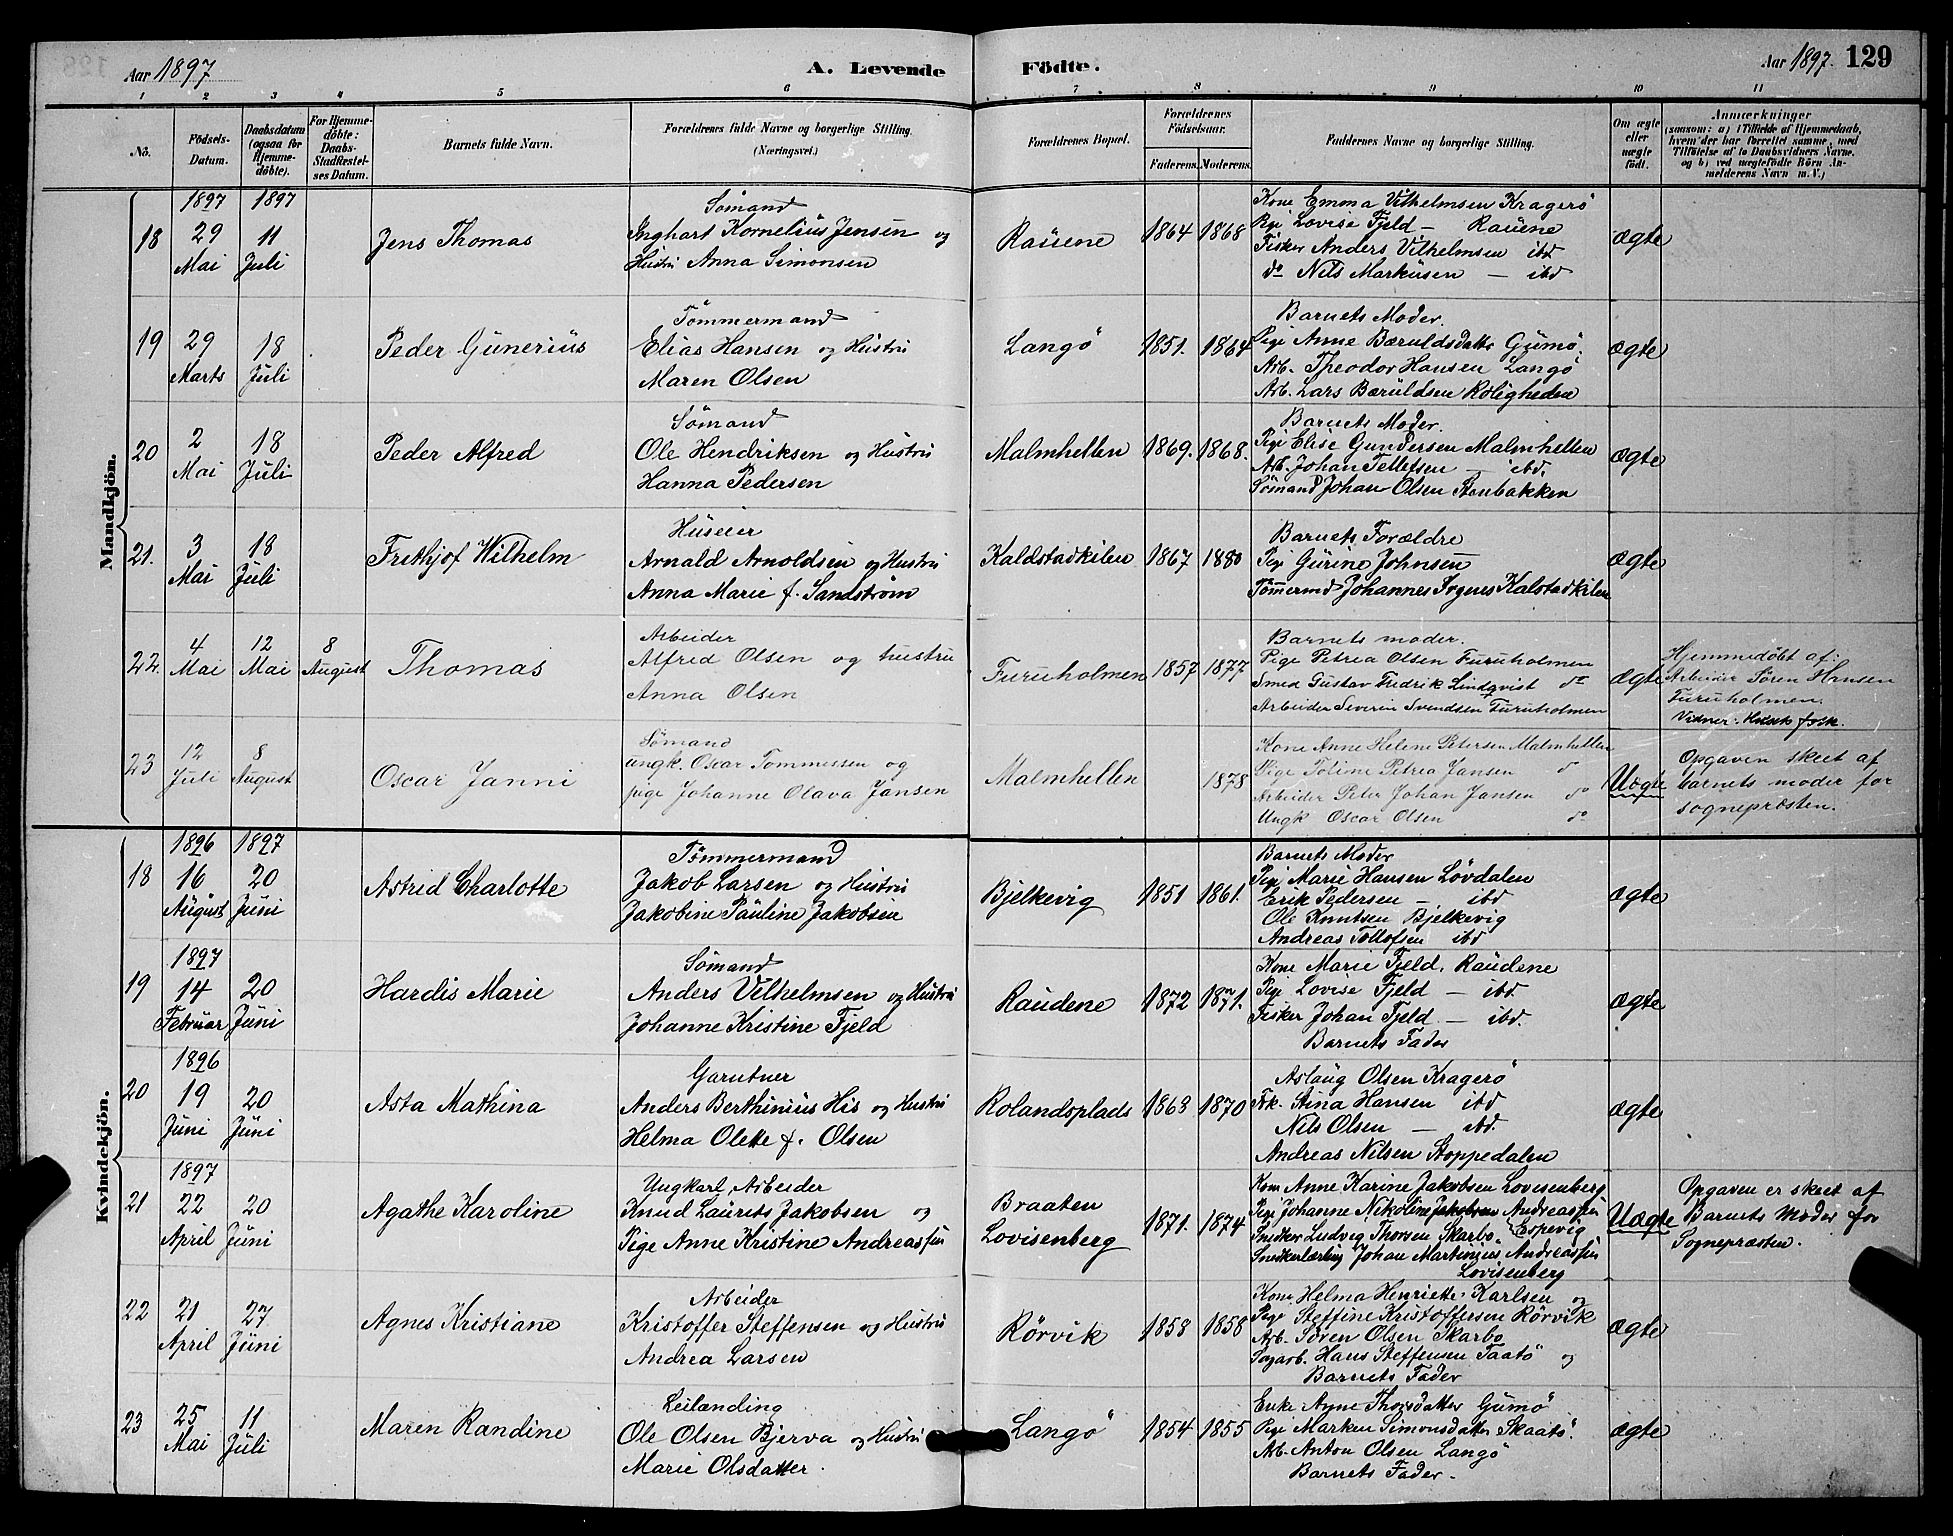 Aar 1897
A. Levende Födte.
Aar 1897. 129
1 2 3 4 5 6 7 8 9 10 11
No.
Födsels-Datum.
Daabsdatum (ogsaa for Hjemmedöbte).
For Hjemmedöbte: Daabs-Stadfæstelses Datum.
Barnets fulde Navn.
Forældrenes fulde Navne og borgerlige Stilling. (Næringsvei.)
Forældrenes Bopæl.
Forældrenes Födselsaar.
Faderens. Moderens.
Faddernes Navne og borgerlige Stilling.
Om ægte eller uægte födt.
Anmærkninger
(saasom: a) i Tilfælde af Hjemmedaab, hvem der har forrettet samme, med Tilföielse af to Daabsvidners Navne, og b) ved uægtefödte Börn Anmelderens Navn m. V.)
Mandkjön.
1897 1897
18 29 Mai 11 Juli
Jens Thomas
Sömand
Inghart Kornelius Jensen og
Hustru Anna Simonsen
Rauene 1864 1868
Kone Emma Vilhelmsen Kragerö
Pige Lovise Fjeld — Rauene
Fisker Anders Vilhelmsen ibd
do Nils Markusen — ibd
ægte
19 29 Marts 18 Juli
Peder Gunerius
Tömmermand
Elias Hansen og Hustru
Maren Olsen
Langö 1851. 1864
Barnets Moder.
Pige Anne Bæruldsdatter Gumö.
Arb. Theodor Hansen Langö
Arb. Lars Bæruldsen Roligheden
ægte
20 2 Mai 18 Juli
Peder Alfred
Sömand
Ole Hendriksen og Hustru
Hanna Pedersen
Malmhellen 1869. 1868.
Barnets Moder.
Pige Elise Gundersen Malmhellen
Arb. Johan Tellefsen — ibd.
Sömand Johan Olsen Stenbakken
ægte
21. 3 Mai 18 Juli
Frithjof Wilhelm
Huseier
Arnald Arnoldsen og Hustru
Anna Marie f. Sandström
Kaldstadkilen 1867 1880
Barnets Forældre
Pige Gurine Johnsen
Tömermd Johannes Kalstadkilen
ægte
22. 4 Mai 12 Mai 8 August
Thomas
Arbeider
Alfred Olsen og hustru
Anna Olsen
Furuholmen 1857 1877
Barnets moder.
Pige Petrea Olsen Furuholmen
Smed Gustav Fredrik Lindqvist do
Arbeider Severin Svendsen Furuholmen
ægte
Hjemmedöbt af:
Arbeider Sören Hansen
Furuholmen.
Vidner: Husets folk.
23 12 Juli 8 August
Oscar Janni
Sömand
ungk. Oscar Tommessen og
pige Johanne Olava Jansen
Malmhellen 1878
Kone Anne Helene Petersen Malmhellen
Pige Toline Petrea Jansen do
Arbeider Peter Johan Jansen do
Ungk Oscar Olsen do
Uægte
Opgaven skeet af
barnets moder for
sognepræsten.
Kvindekjön.
1896 1897
18 16 August 20 Juni
Astrid Charlotte
Tömmermand
Jakob Larsen og Hustru
Jakobine Pauline Jakobsen
Bjelkevig 1851 1861.
Barnets Moder
Pige Marie Hansen Lövdalen
Erik Pedersen — ibd
Ole Knutsen Bjelkevig
Andreas Tollofsen ibd
ægte
1897
19 14 Februar 20 Juni
Hardis Marie
Sömand
Anders Vilhelmsen og Hustru
Johanne Kristine Fjeld
Raudene 1872 1871.
Kone Marie Fjeld, Raudene
Pige Lovise Fjeld — ibd.
Fisker Johan Fjeld — ibd.
Barnets Fader
ægte
1896
20 19 Juni 20 Juni
Asta Mathina
Garntner
Anders Berthinius His og Hustru
Helma Olette f. Olsen
Rolandsplads 1863 1870
Aslaug Olsen Kragerö
Frk. Stina Hansen ibd
Nils Olsen — ibd.
Andreas Nilsen Stoppedalen
ægte
1897
21 22 April 20 Juni
Agathe Karoline
Ungkarl, Arbeider
Knud Laurits Jakobsen og
Pige Anne Kristine Andreassen
Braaten
Lovisenberg 1871. 1874
Kone Anne Karine Jakobsen Lovisenberg
Pige Johanne Nikoline Jakobsen Andreassen
Snedker Ludvig Thorsen Skarbo. Espevig
Snedkerlærling Johan Martinius Andreassen
Lovisenberg
Uægte
Opgaven er skeet af
Barnets Moder for
Sognepræsten.
22 21 April 27 Juni
Agnes Kristiane
Arbeider
Kristoffer Steffensen og Hustru
Andrea Larsen
Rörvik 1858 1858
Kone Helma Henriette Karlsen og
Pige Steffine Kristoffersen Rörvik
Arb. Sören Olsen Skarbo
Sagarb. Hans Steffensen Taatö og
Barnets Fader
ægte
23 25 Mai 11 Juli
Maren Randine
Leilænding
Ole Olsen Bjerva og Hustru
Marie Olsdatter.
Langö 1854 1855
Enke Anne Thorsdatter Gumö
Pige Marken Simonsdatter Skaatö.
Arb. Anton Olsen Langö
Barnets Fader.
ægte